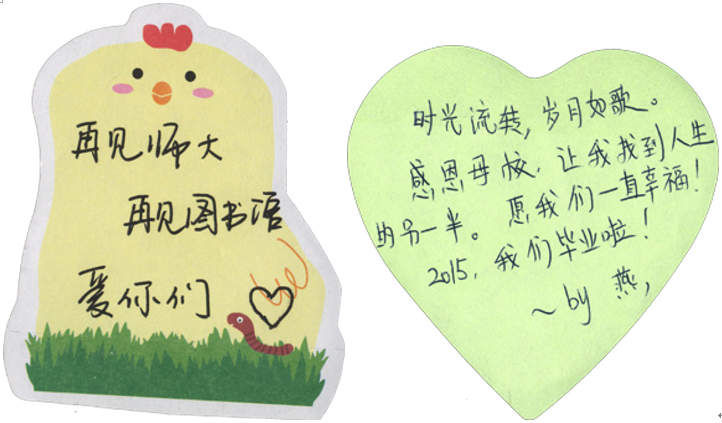 再见师大
再见图书馆
爱你们
时光流转，岁月如歌。
感恩母校，让我找到人生
的另一半。愿我们一直幸福！
2015，我们毕业啦！
~by 燕，